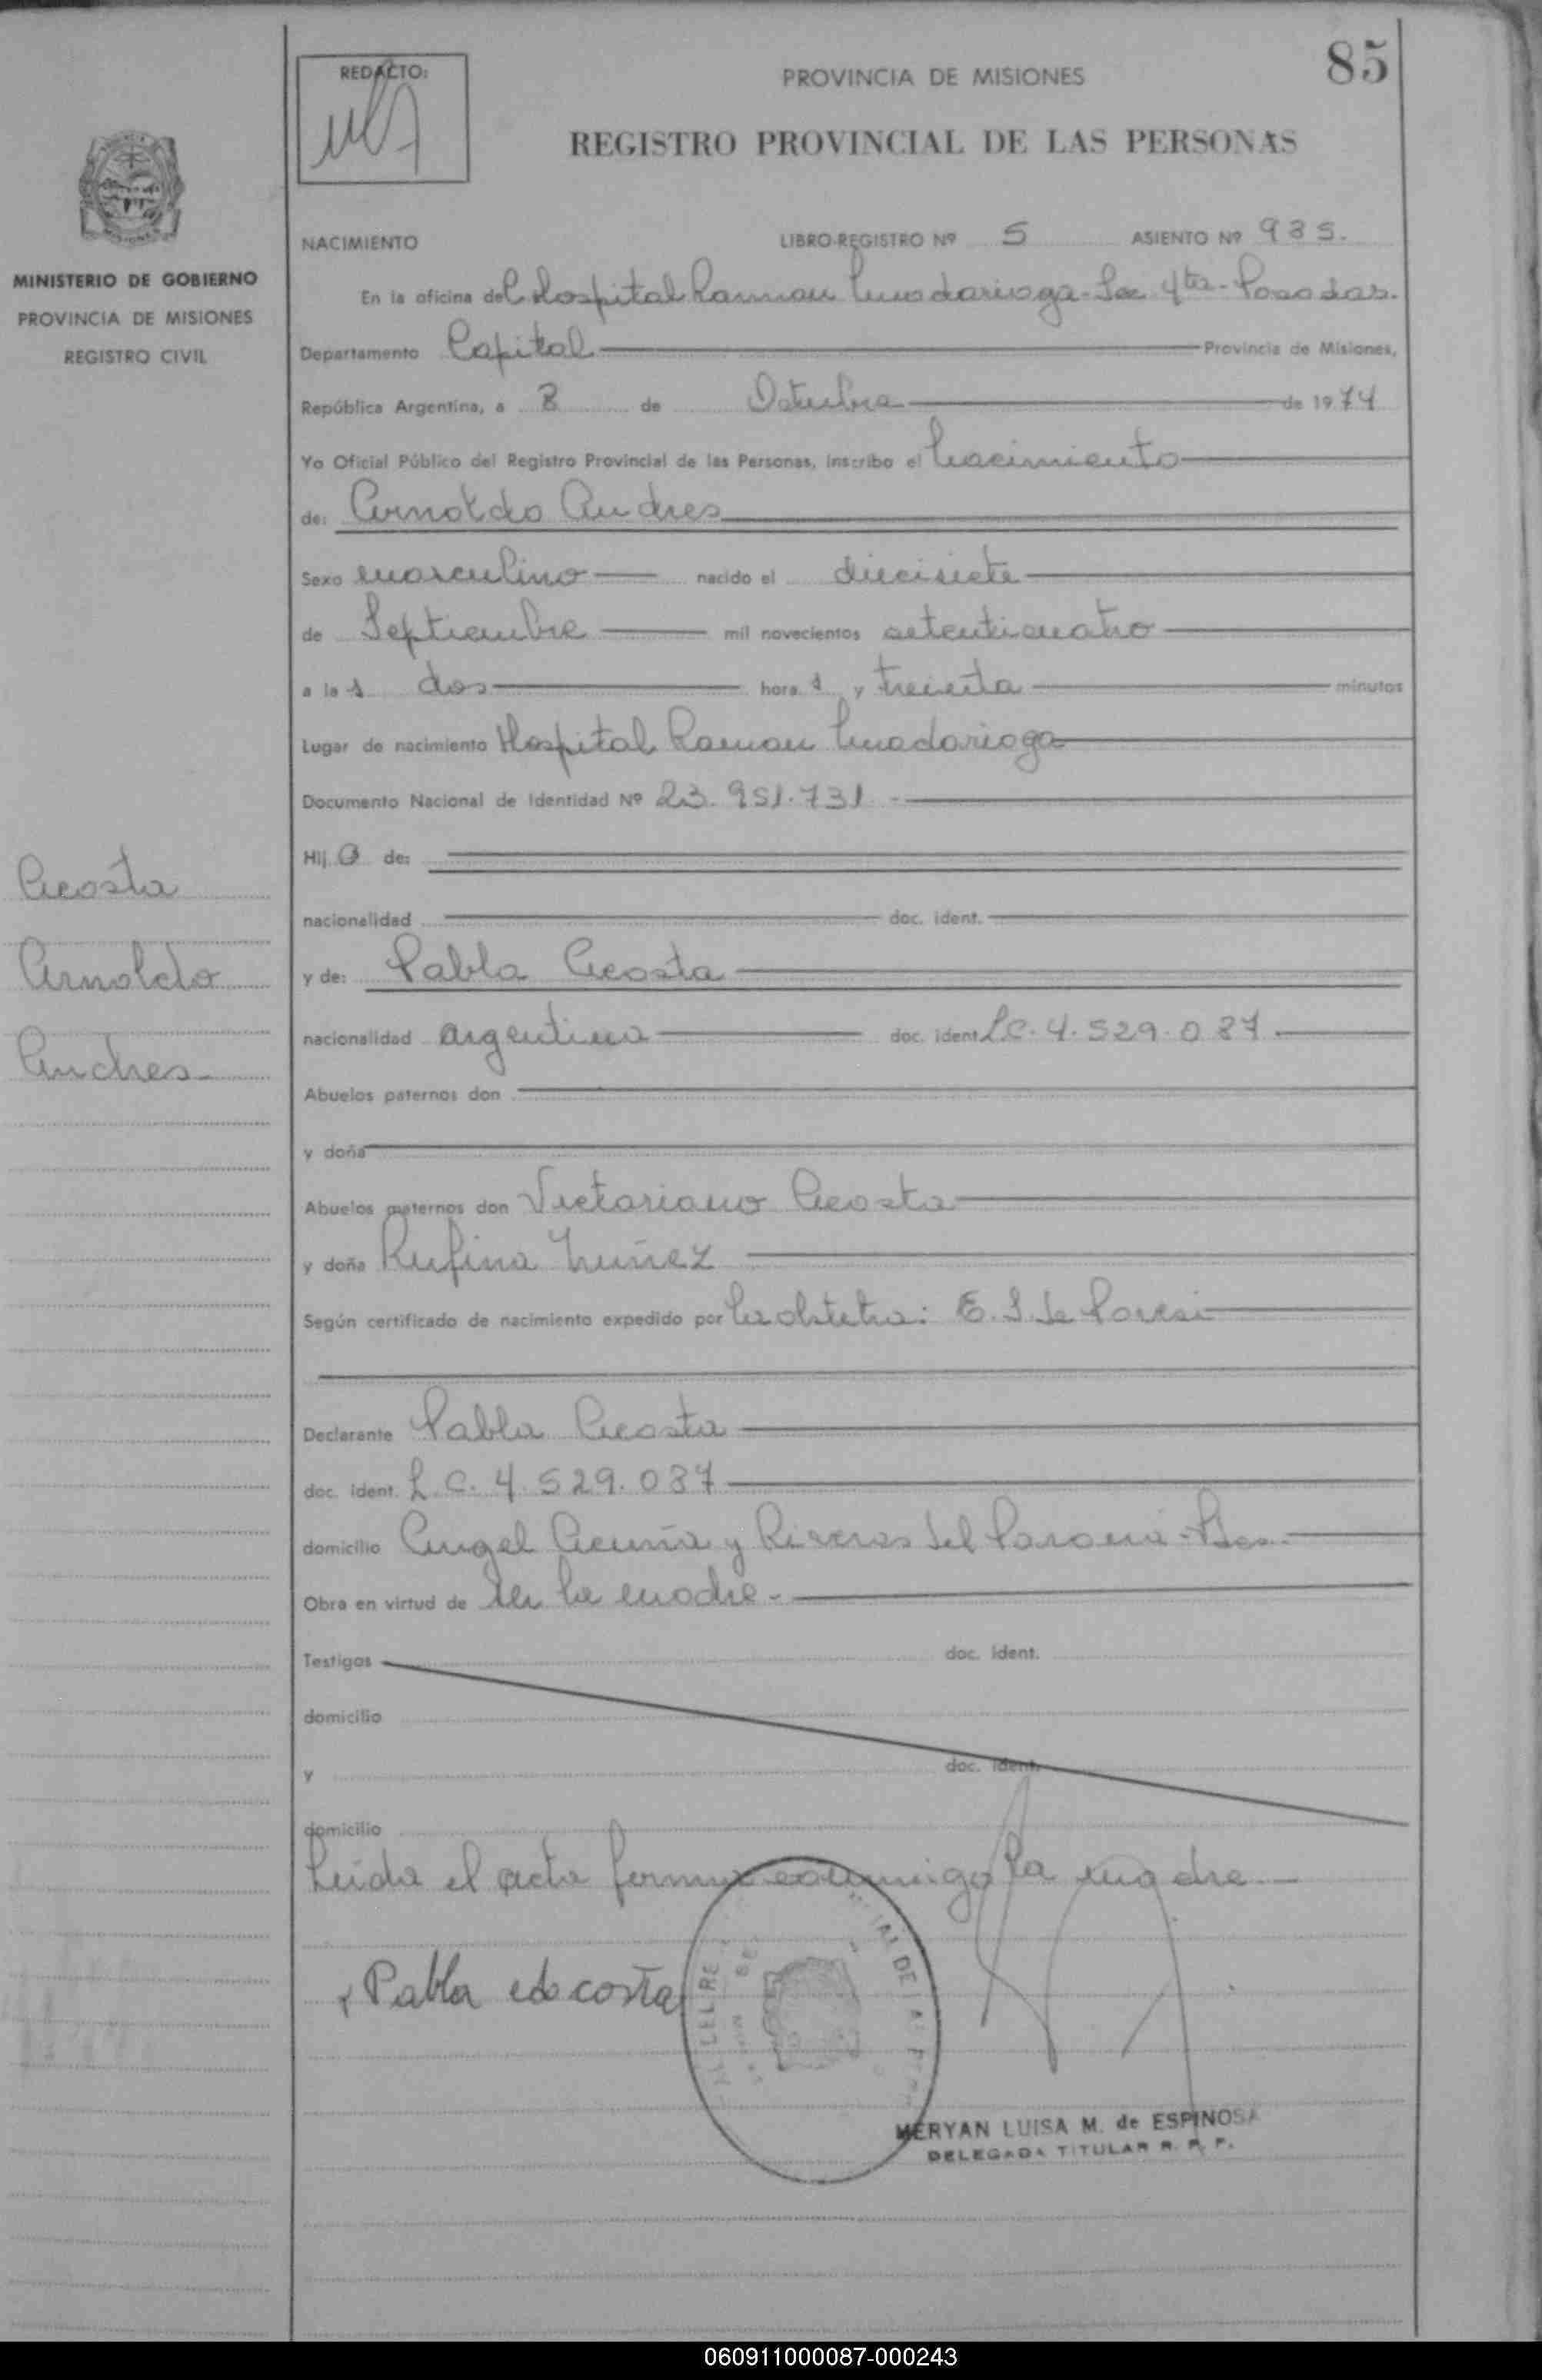 85
REDACTO:
PROVINCIA DE MISIONES
REGISTRO PROVINCIAL DE LAS PERSONAS
MINISTERIO DE GOBIERNO
PROVINCIA DE MISIONES
REGISTRO CIVIL
Acosta
Arnoldo
Andres
NACIMIENTO LIBRO-REGISTRO Nº 5 ASIENTO Nº 935.
En la oficina del Hospital Ramon Madariaga - Sec 4ta - Posadas.
Departamento Capital Provincia de Misiones,
República Argentina, a 8 de Octubre de 1974
Yo Oficial Público del Registro Provincial de las Personas, inscribo el Nacimiento
de: Arnoldo Andres
Sexo masculino nacido el diecisiete
de Septiembre mil novecientos setenticuatro
a las dos horas y treinta minutos
Lugar de nacimiento Hospital Ramon Madariaga
Documento Nacional de Identidad Nº 23.951.731 -
Hijo de:
nacionalidad doc. ident.
y de: Pabla Acosta
nacionalidad argentina doc. ident L.C. 4.529.037
Abuelos paternos don
y doña
Abuelos maternos don Victoriano Acosta
y doña Rufina Nuñez
Según certificado de nacimiento expedido por la obstetra: E. S. de
Declarante Pabla Acosta
doc. ident. L.C. 4.529.037
domicilio Angel Acuña y Riveras del Parana - Pdas.
Obra en virtud de ser la madre -
Testigos doc. ident.
domicilio
y doc. ident.
domicilio
Leida el acta firma conmigo la madre. -
Pabla
MERYAN LUISA M. de ESPINOSA
DELEGADA TITULAR R. P. P.
060911000087-000243